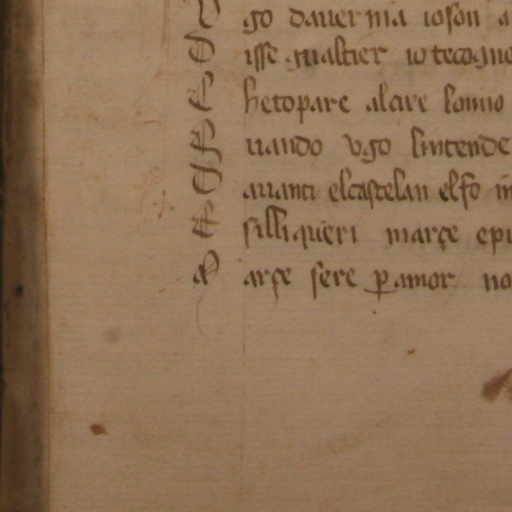 V go dauernia ioson a
D isse gualtier io tecogno
C hetopare alcire lomio
Q uando vgo lintende
D auanti elcastelan elfo in
E silli queri març̧e epu
M arçe sere p amor no